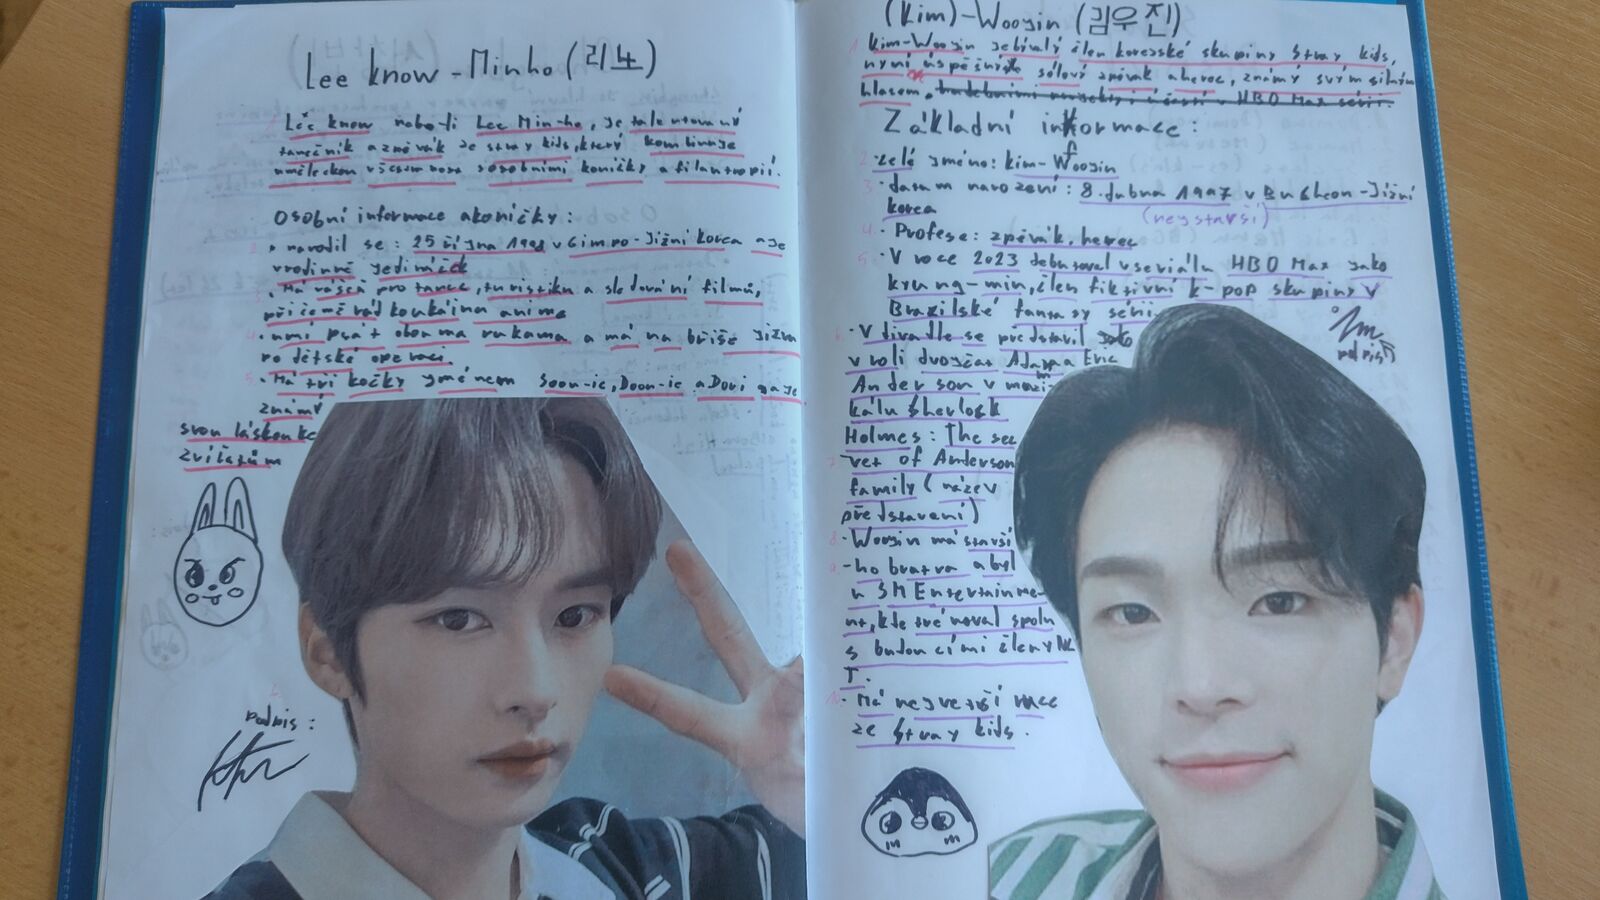 Lee know - Minho (리노)
Lee know neboli Lee Min-ho, je talentovaný
tanečník a zpěvák ze stray kids, který kombinuje
uměleckou všestrannost s osobními koníčky a filantropií.
Osobní informace a koníčky:
2. • narodil se: 25 října 1998 v Gimpo-Jižní Korea a je
v rodinně jedináček
3. Má vášeň pro tanec, turistiku a sledování filmů,
přičemž rád kouká na anime
4. • umí psát oběma rukama a má na břiše jizvu
po dětské operaci.
5. • Má tři kočky jménem Soon-ie, Doon-ie a Dori a je
známý
svou láskou ke
zvířatům
6.
podpis:
(Kim)-Woojin (김우진)
1. Kim-Woojin je bývalý člen korejské skupiny Stray kids,
nyní úspěšný sólový zpěvák a herec, známý svým silným
hlasem, hudebními projekty i účastí v HBO Max sérii.
Základní informace:
2. • celé jméno: Kim-Woojin
3. • datum narození: 8. dubna 1997 v Bucheon-Jižní
Korea (nejstarší)
4. • Profese: zpěvák, herec
5. • V roce 2023 debutoval v seriálu HBO Max jako
kyung-min, člen fiktivní k-pop skupiny v
Brazilské fantasy sérii.
6. • V divadle se představil jako
v roli dvojčat Adama Eric
Anderson v muzi-
kálu Sherlock
Holmes: The sec
7. ret of Anderson
family (název
představení)
8. • Woojin má starší
9. -ho bratra a byl
u SM Entertainme-
nt, kde trénoval spolu
s budoucími členy NC
T.
10. • Má největší ruce
ze Stray kids.
podpis